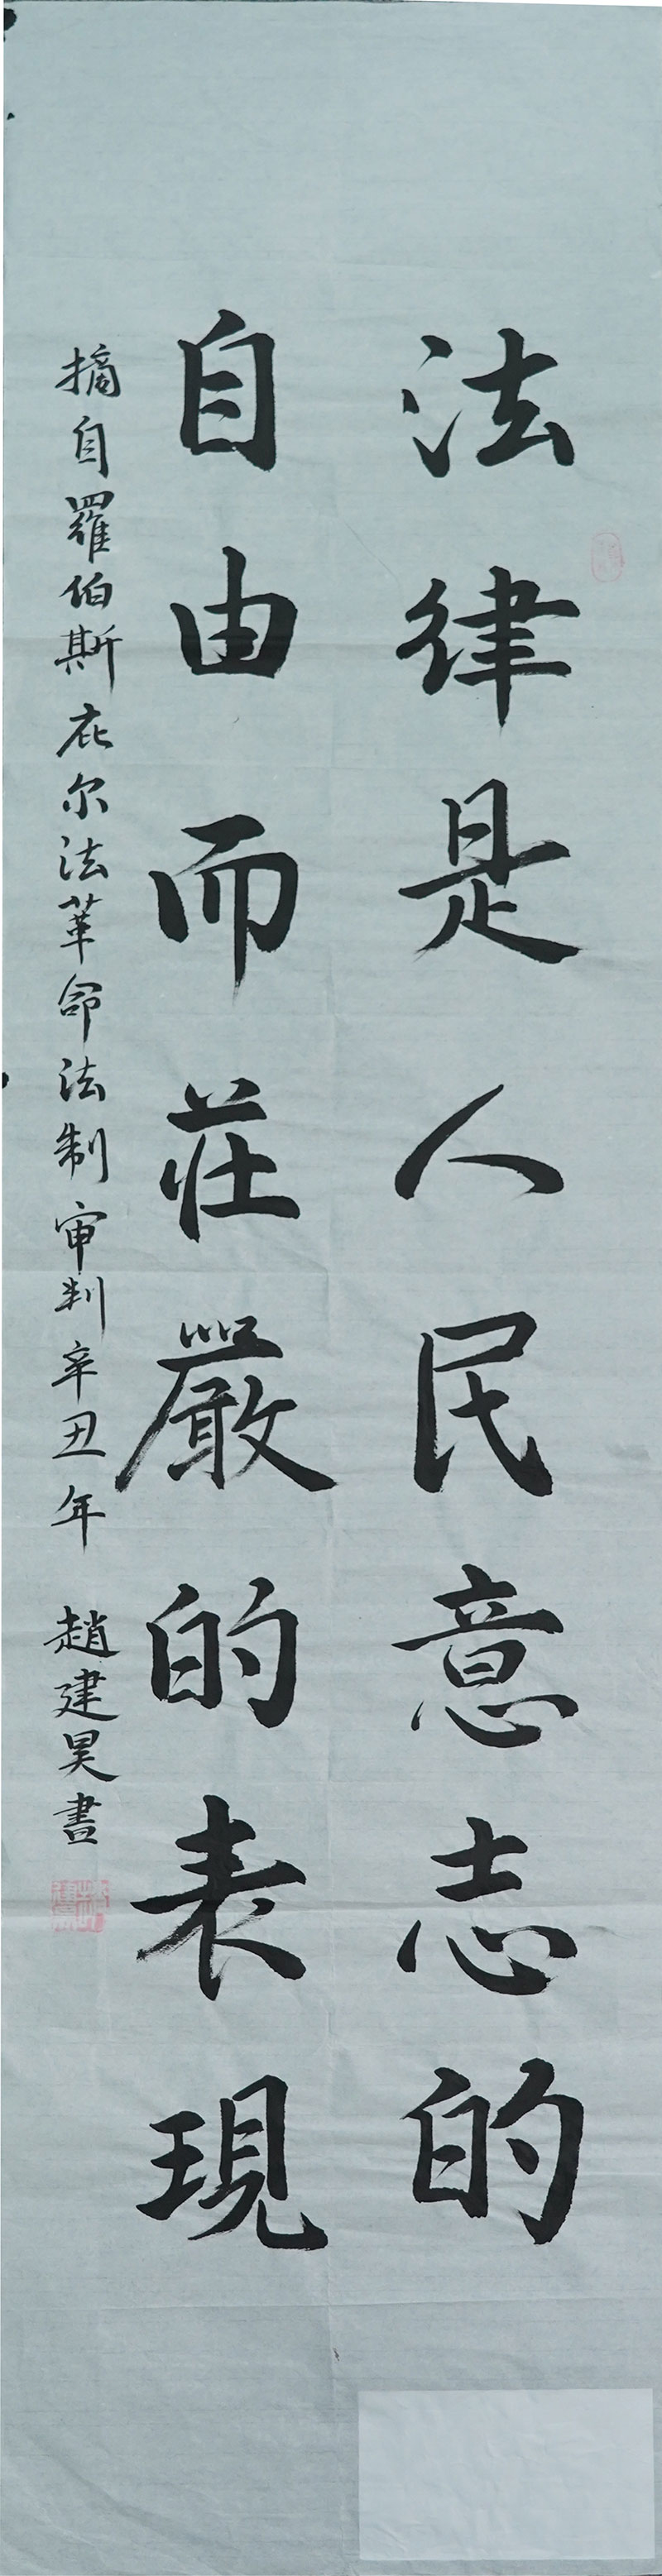 法律是人民意志的
自由而莊嚴的表現
摘自羅伯斯庇尔法革命法制审判辛丑年 趙建昊書